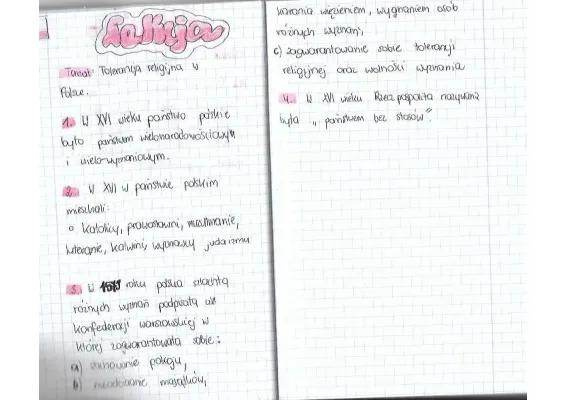 Lekcja
Temat: Tolerancja religijna w
Polsce.
1. W XVI wieku państwo polskie
było państwem wielonarodowościowym
i wielo-wyznaniowym.
2. W XVI w państwie polskim
mieszkali:
o Katolicy, prawosławni, muzułmanie,
luteranie, kalwini, wyznawcy judaizmu
3. W 1573 roku polska szlachta
różnych wyznań podpisała akt
konfederacji warszawskiej w
której zagwarantowała sobie:
a) zachowanie pokoju,
b) majątków,
karania więzieniem, wygnaniem osób
różnych wyznań,
c) zagwarantowanie sobie tolerancji
religijnej oraz wolności wyznania
4. W XVI wieku Rzeczpospolita nazywana
była „państwem bez stosów".